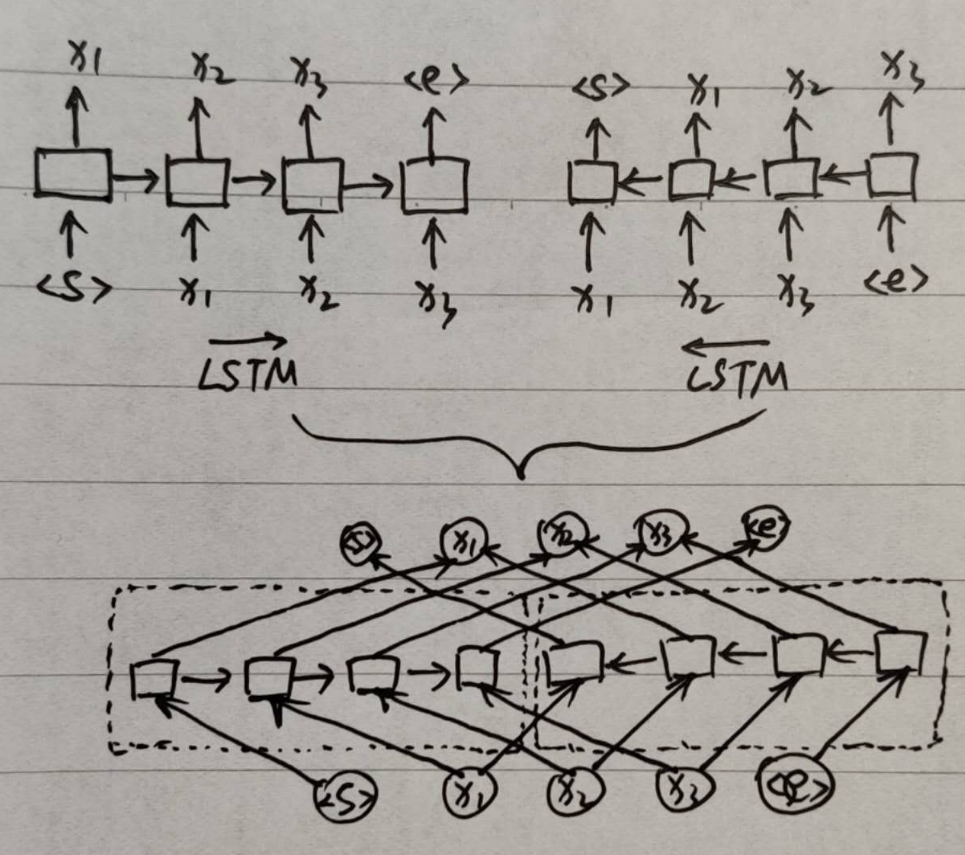 x1 x2 x3 <e> <s> x1 x2 x3
<S> x1 x2 x3 x1 x2 x3 <e>
LSTM LSTM
<s> x1 x2 x3 <e>
<S> x1 x2 x3 <e>